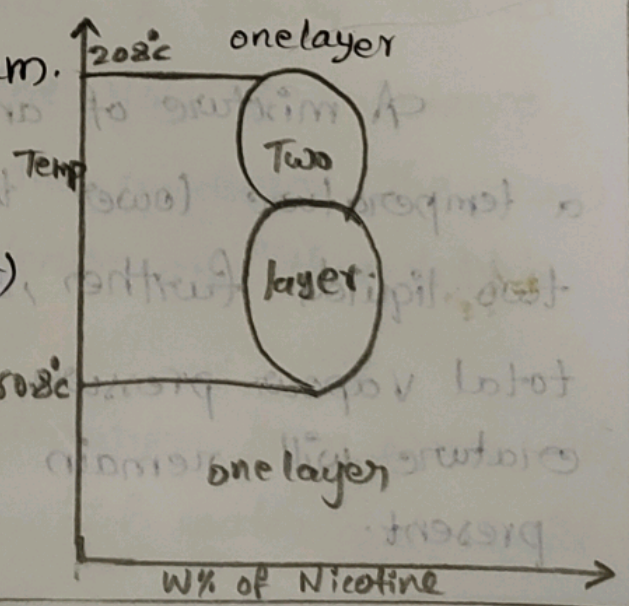 208°C
onelayer
m.
Temp
Two
layer
)
50.8°C
onelayer
W% of Nicotine